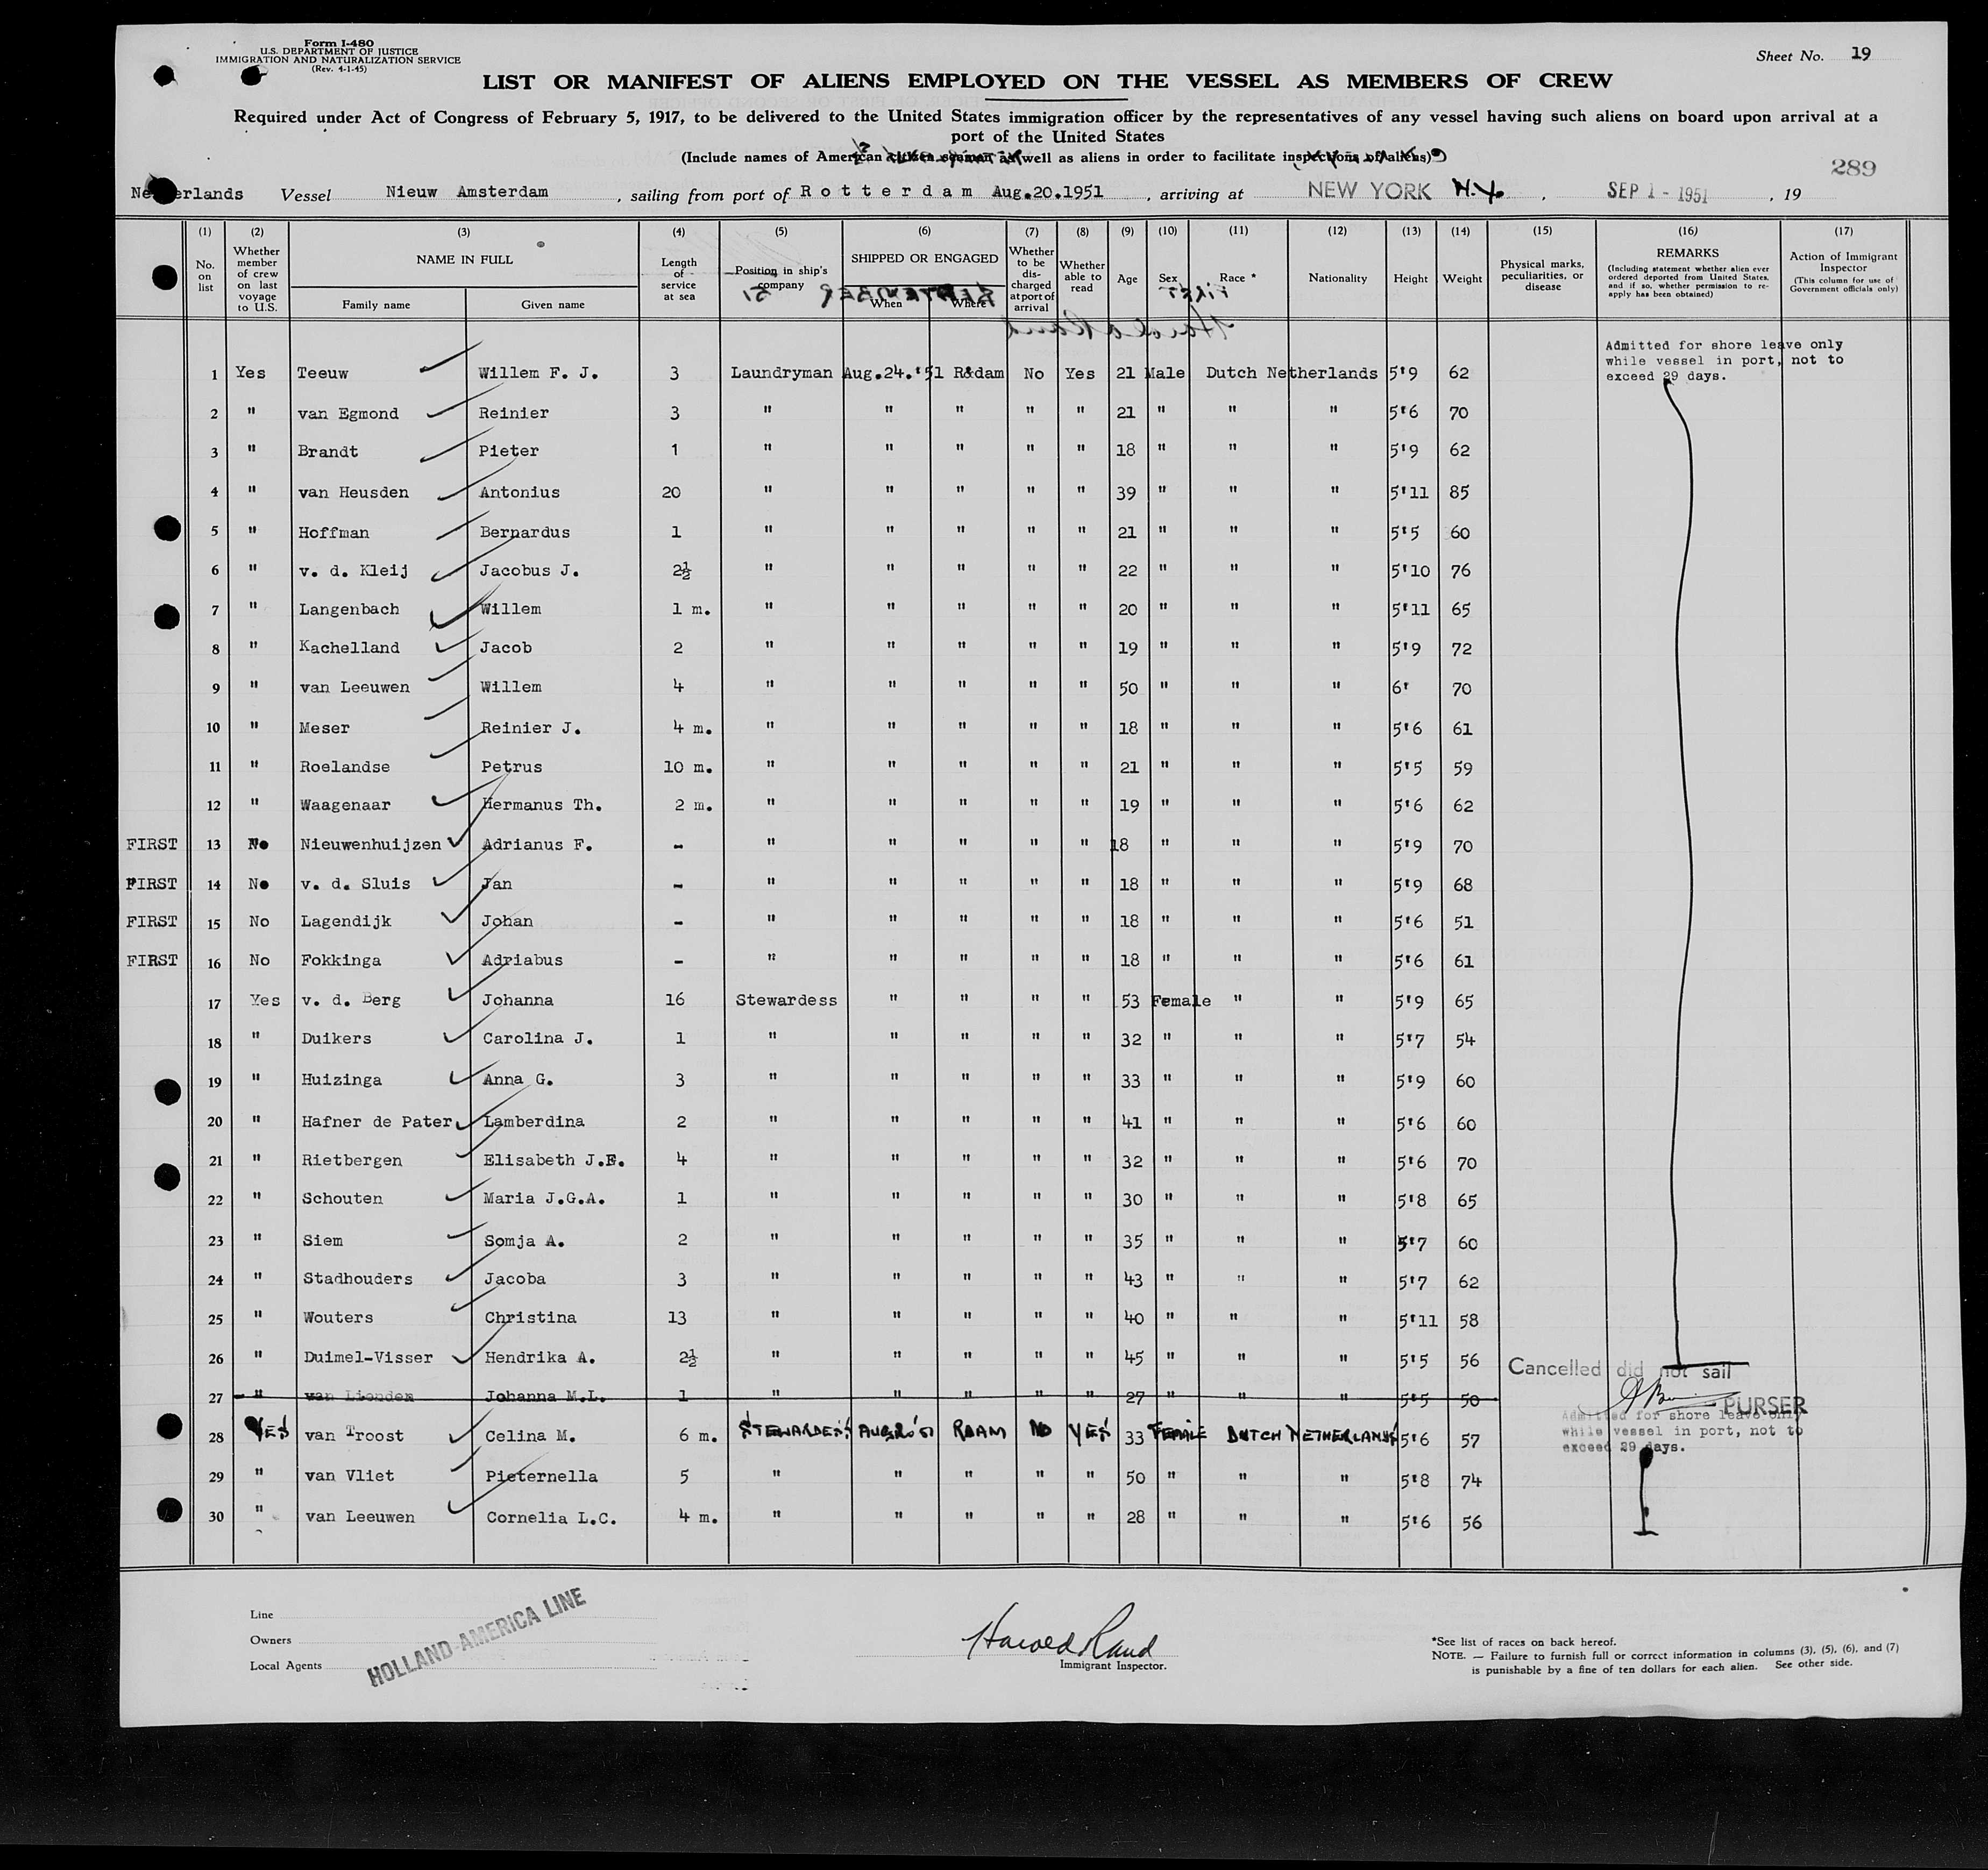 Form I-480
U.S. DEPARTMENT OF JUSTICE
IMMIGRATION AND NATURALIZATION SERVICE
(Rev. 4-1-45)
Sheet No. 19
LIST OR MANIFEST OF ALIENS EMPLOYED ON THE VESSEL AS MEMBERS OF CREW
Required under Act of Congress of February 5, 1917, to be delivered to the United States immigration officer by the representatives of any vessel having such aliens on board upon arrival at a
port of the United States
(Include names of American citizen seaman as well as aliens in order to facilitate inspections of aliens)
289
Netherlands Vessel Nieuw Amsterdam , sailing from port of Rotterdam Aug.20.1951 , arriving at NEW YORK N.Y. , SEP 1 - 1951 , 19
(1) (2) (3) (4) (5) (6) (7) (8) (9) (10) (11) (12) (13) (14) (15) (16) (17)
No. on list
Whether member of crew on last voyage to U.S.
NAME IN FULL
Family name Given name
Length of service at sea
Position in ship's company
SHIPPED OR ENGAGED
When Where
Whether to be discharged at port of arrival
Whether able to read
Age Sex Race * Nationality Height Weight
Physical marks, peculiarities, or disease
REMARKS
(Including statement whether alien ever ordered deported from United States, and if so, whether permission to reapply has been obtained)
Action of Immigrant Inspector
(This column for use of Government officials only)
Admitted for shore leave only
while vessel in port, not to
exceed 29 days.
1 Yes Teeuw Willem F. J. 3 Laundryman Aug.24.'51 R'dam No Yes 21 Male Dutch Netherlands 5'9 62
2 " van Egmond Reinier 3 " " " " " 21 " " " 5'6 70
3 " Brandt Pieter 1 " " " " " 18 " " " 5'9 62
4 " van Heusden Antonius 20 " " " " " 39 " " " 5'11 85
5 " Hoffman Bernardus 1 " " " " " 21 " " " 5'5 60
6 " v. d. Kleij Jacobus J. 2½ " " " " " 22 " " " 5'10 76
7 " Langenbach Willem 1 m. " " " " " 20 " " " 5'11 65
8 " Kachelland Jacob 2 " " " " " 19 " " " 5'9 72
9 " van Leeuwen Willem 4 " " " " " 50 " " " 6' 70
10 " Meser Reinier J. 4 m. " " " " " 18 " " " 5'6 61
11 " Roelandse Petrus 10 m. " " " " " 21 " " " 5'5 59
12 " Waagenaar Hermanus Th. 2 m. " " " " " 19 " " " 5'6 62
FIRST 13 No Nieuwenhuijzen Adrianus F. - " " " " " 18 " " " 5'9 70
FIRST 14 No v. d. Sluis Jan - " " " " " 18 " " " 5'9 68
FIRST 15 No Lagendijk Johan - " " " " " 18 " " " 5'6 51
FIRST 16 No Fokkinga Adriabus - " " " " " 18 " " " 5'6 61
17 Yes v. d. Berg Johanna 16 Stewardess " " " " 53 Female " " 5'9 65
18 " Duikers Carolina J. 1 " " " " " 32 " " " 5'7 54
19 " Huizinga Anna G. 3 " " " " " 33 " " " 5'9 60
20 " Hafner de Pater Lamberdina 2 " " " " " 41 " " " 5'6 60
21 " Rietbergen Elisabeth J.F. 4 " " " " " 32 " " " 5'6 70
22 " Schouten Maria J.G.A. 1 " " " " " 30 " " " 5'8 65
23 " Siem Somja A. 2 " " " " " 35 " " " 5'7 60
24 " Stadhouders Jacoba 3 " " " " " 43 " " " 5'7 62
25 " Wouters Christina 13 " " " " " 40 " " " 5'11 58
26 " Duimel-Visser Hendrika A. 2½ " " " " " 45 " " " 5'5 56
Cancelled did not sail
27 " van Lienden Johanna M.L. 1 " " " " " 27 " " " 5'5 50
PURSER
Admitted for shore leave only
while vessel in port, not to
exceed 29 days.
28 YES van Troost Celina M. 6 m. STEWARDESS RDAM NO YES 33 FEMALE DUTCH NETHERLANDS 5'6 57
29 " van Vliet Pieternella 5 " " " " " 50 " " " 5'8 74
30 " van Leeuwen Cornelia L.C. 4 m. " " " " " 28 " " " 5'6 56
Line
Owners
Local Agents
HOLLAND-AMERICA LINE
Harold Rand
Immigrant Inspector.
*See list of races on back hereof.
NOTE. — Failure to furnish full or correct information in columns (3), (5), (6), and (7)
is punishable by a fine of ten dollars for each alien. See other side.